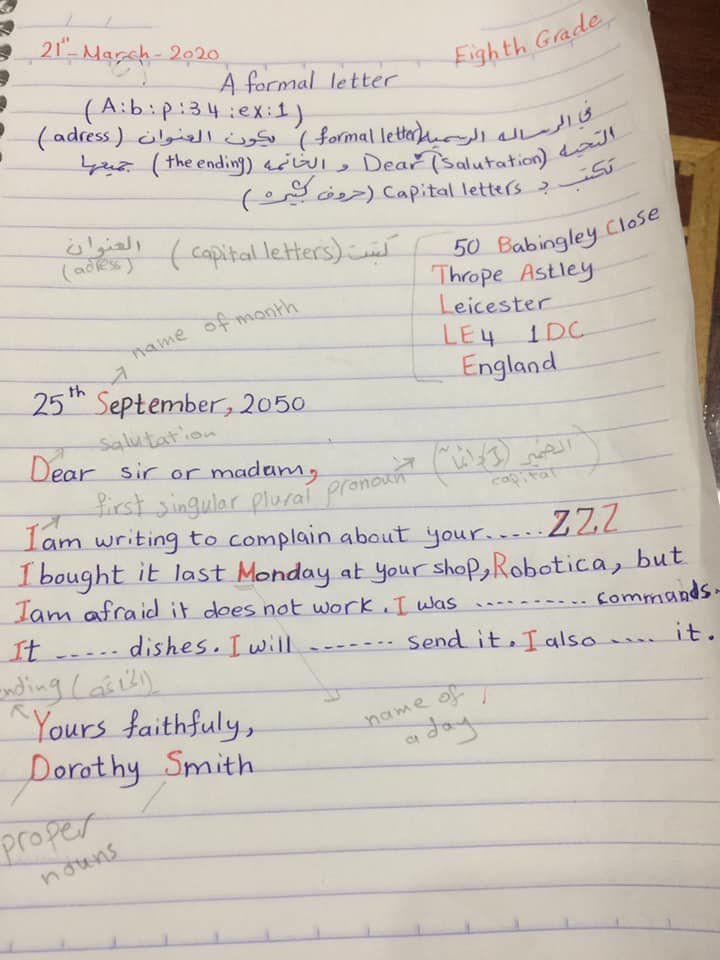 21st - March - 2020
Eighth Grade
A formal letter
(A:b:p:34:ex:1)
في الرساله الرسميه (formal letter) يكون العنوان (adress)
التحيه (salutation) Dear و الخاتمه (the ending) جميعها
تكتب بـ Capital letters (حروف كبيره)
العنوان (capital letters) كتبت
(adress)
50 Babingley Close
Thrope Astley
Leicester
LE4 1DC
England
name of month
25th September, 2050
salutation
Dear sir or madam,
first singular plural pronoun (الضمير I دائماً)
capital
I am writing to complain about your..... ZZZ
I bought it last Monday at your shop, Robotica, but
I am afraid it does not work. I was ........... commands.
It ..... dishes. I will ....... send it. I also .... it.
ending (الخاتمة)
Yours faithfuly,
name of
a day
Dorothy Smith
proper
nouns